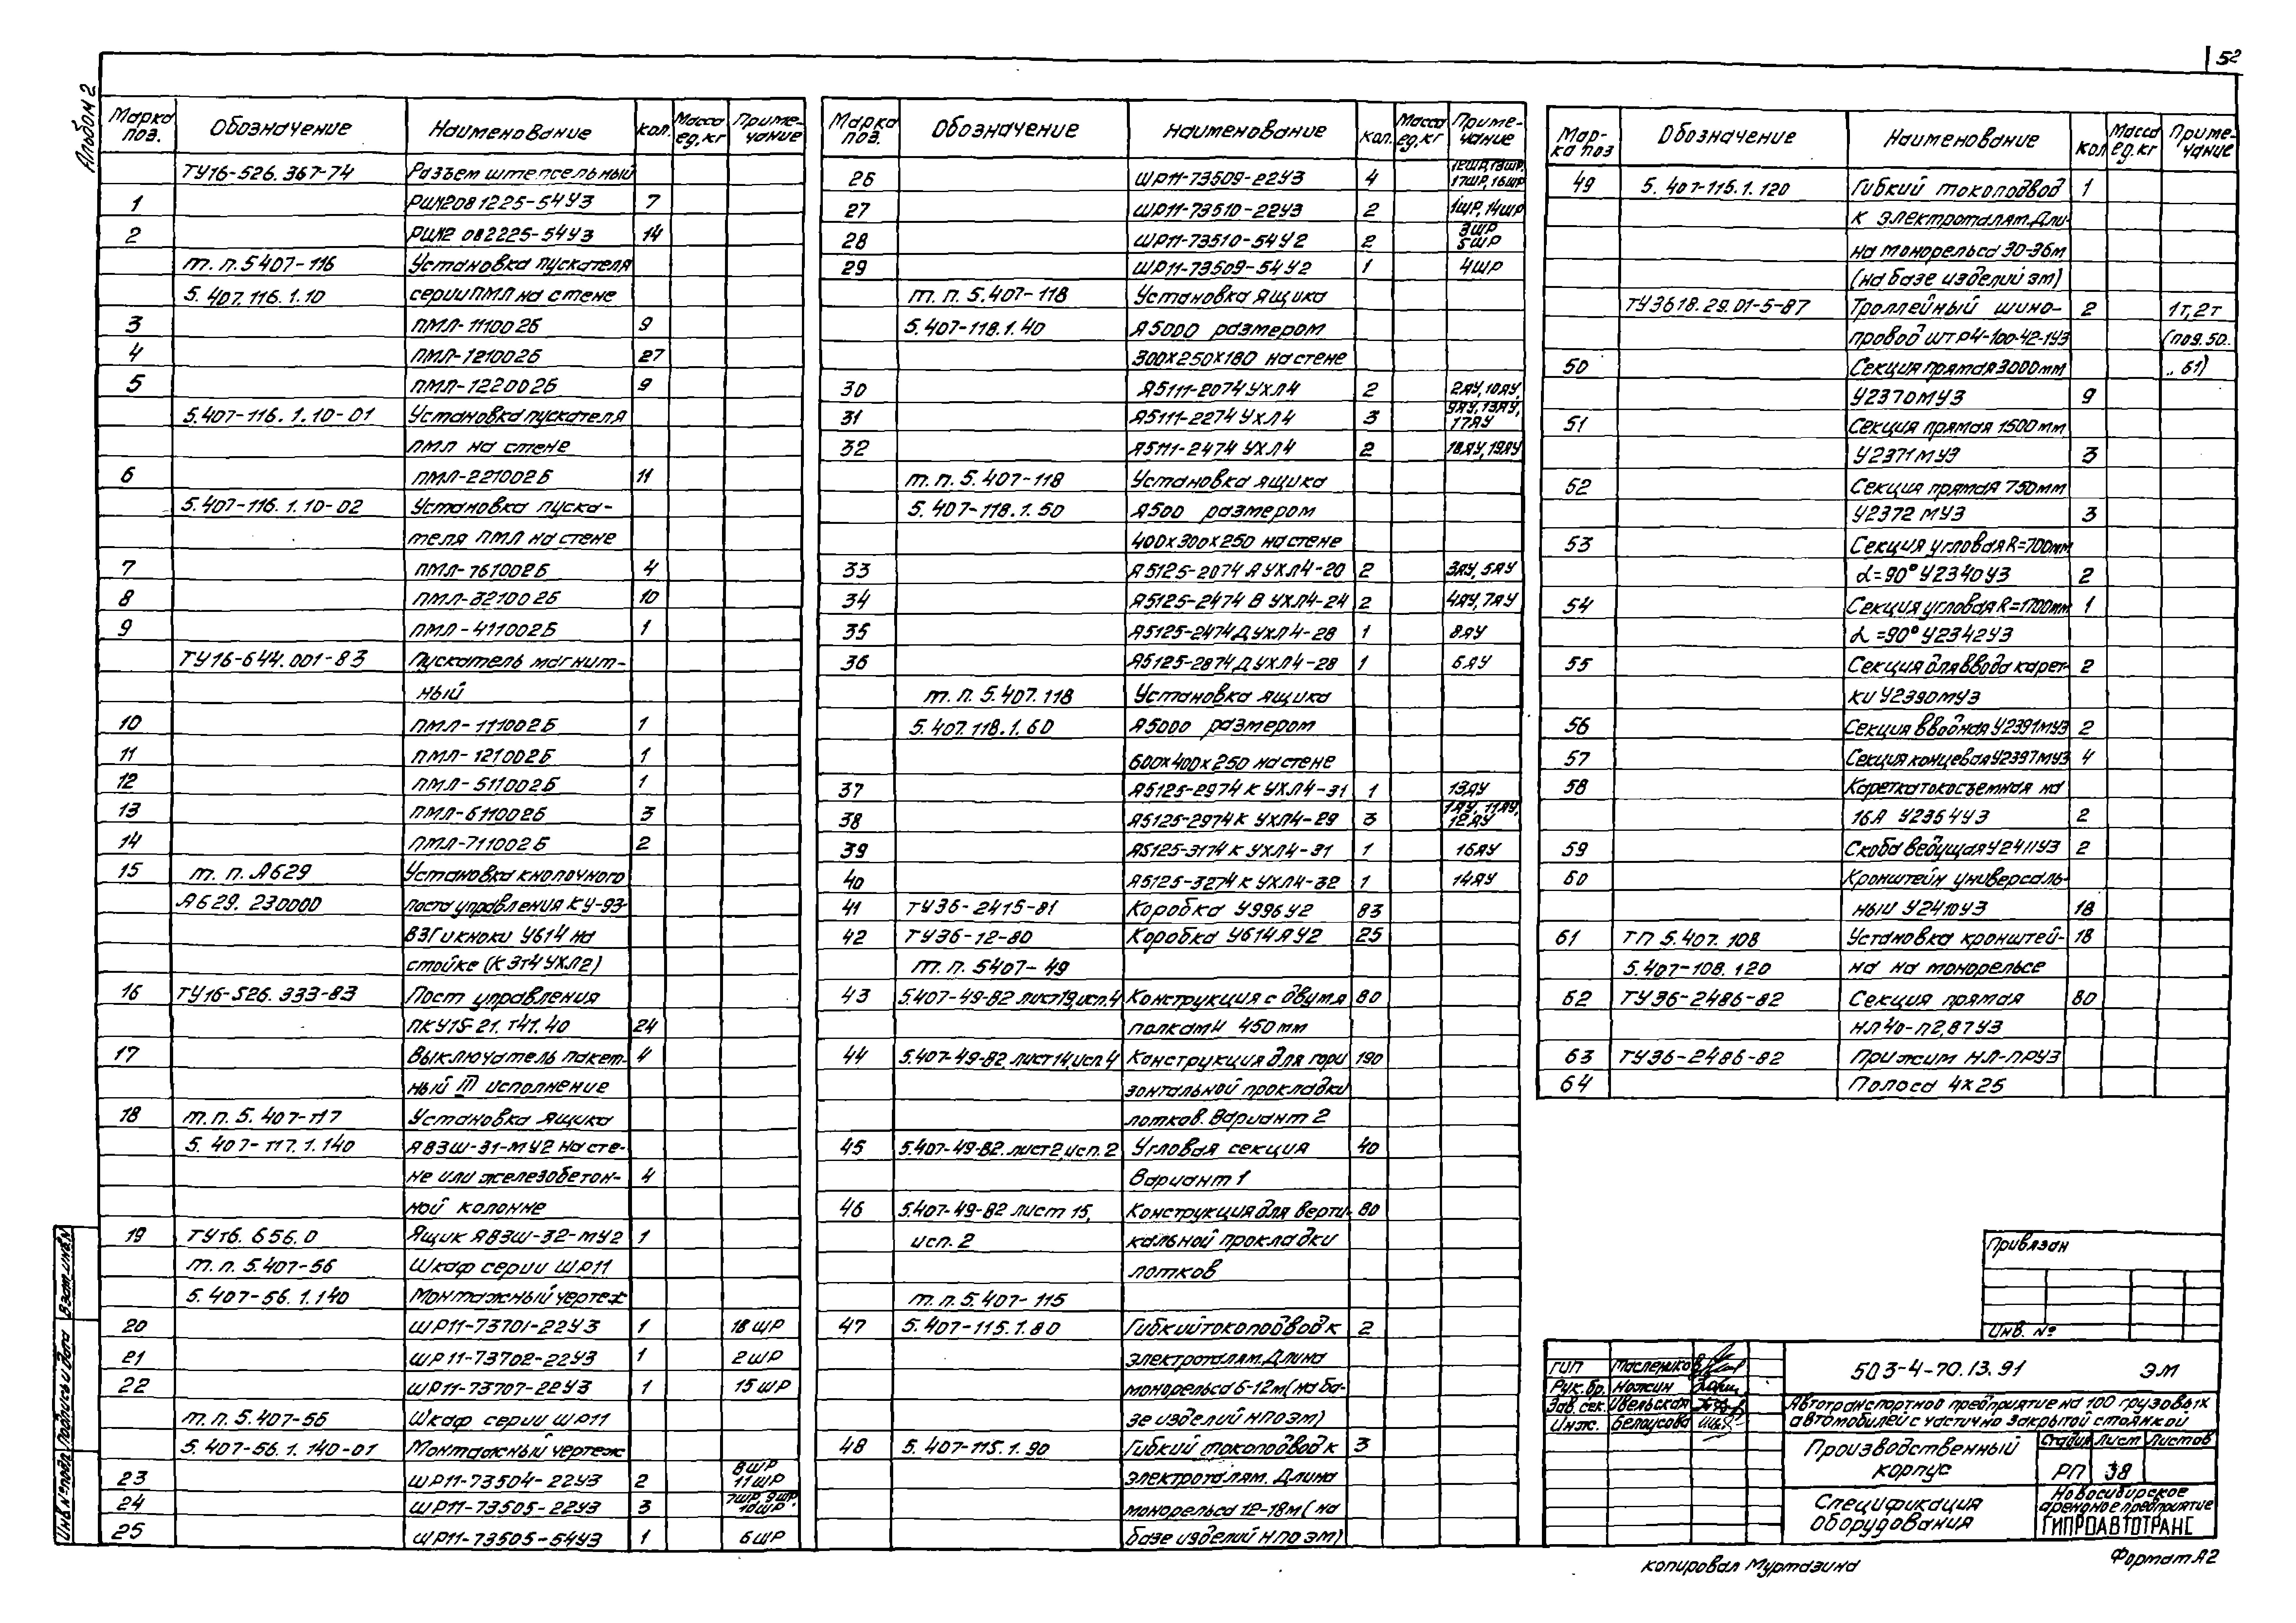 52
Альбом 2
Марка поз. Обозначение Наименование кол. Масса ед, кг Примечание
ТУ16-526.367-74 Разъем штепсельный
1 РШ2081225-54У3 7
2 082225-54У3 14
т.п. 5407-116 Установка пускателя
5.407.116.1.10 серии ПМЛ на стене
3 ПМЛ-111002Б 9
4 ПМЛ-121002Б 27
5 ПМЛ-122002Б 9
5.407-116.1.10-01 Установка пускателя
ПМЛ на стене
6 ПМЛ-221002Б 11
5.407-116.1.10-02 Установка пуска-
теля ПМЛ на стене
7 ПМЛ-761002Б 4
8 ПМЛ-321002Б 10
9 ПМЛ-411002Б 1
ТУ16-644.001-83 Пускатель магнит-
ный
10 ПМЛ-111002Б 1
11 ПМЛ-121002Б 1
12 ПМЛ-511002Б 1
13 ПМЛ-611002Б 3
14 ПМЛ-711002Б 2
15 т.п. А629 Установка кнопочного
А629.230000 поста управления КУ-93-
ВЗГ и кноки У614 на
стойке (КЭТ4УХЛ2)
16 ТУ16-526.333-83 Пост управления
ПКУ15-21.т41.40 24
17 Выключатель пакет- 4
ный III исполнение
18 т.п. 5.407-117 Установка ящика
5.407-117.1.140 ЯВЗШ-31-МУ2 на сте-
не или железобетон- 4
ной колонне
19 ТУ16.656.0 Ящик ЯВЗШ-32-МУ2 1
т.п. 5.407-56 Шкаф серии ШР11
5.407-56.1.140 Монтажный чертеж
20 ШР11-73701-22У3 1 18ШР
21 ШР11-73702-22У3 1 2ШР
22 ШР11-73707-22У3 1 15ШР
т.п. 5.407-56 Шкаф серии ШР11
5.407-56.1.140-01 Монтажный чертеж
23 ШР11-73504-22У3 2 8ШР 11ШР
24 ШР11-73505-22У3 3 7ШР, 9ШР, 10ШР
25 ШР11-73505-54У3 1 6ШР
Марка поз. Обозначение Наименование кол. Масса ед, кг Примечание
26 ШР11-73509-22У3 4 12ШР, 13ШР, 17ШР, 16ШР
27 ШР11-73510-22У3 2 1ШР, 14ШР
28 ШР11-73510-54У2 2 3ШР 5ШР
29 ШР11-73509-54У2 1 4ШР
т.п. 5.407-118 Установка ящика
5.407-118.1.40 Я5000 размером
300х250х180 на стене
30 Я5111-2074УХЛ4 2 2ЯУ, 10ЯУ,
31 Я5111-2274УХЛ4 3 9ЯУ, 13ЯУ, 17ЯУ
32 Я5111-2474УХЛ4 2 18ЯУ, 19ЯУ
т.п. 5.407-118 Установка ящика
5.407-118.1.50 Я500 размером
400х300х250 на стене
33 Я5125-2074 А УХЛ4-20 2 3ЯУ, 5ЯУ
34 Я5125-2474 В УХЛ4-24 2 4ЯУ, 7ЯУ
35 Я5125-2474 Д УХЛ4-28 1 8ЯУ
36 Я5125-2874 Д УХЛ4-28 1 6ЯУ
т.п. 5.407.118 Установка ящика
5.407.118.1.60 Я5000 размером
600х400х250 на стене
37 Я5125-2974 К УХЛ4-31 1 13ЯУ
38 Я5125-2974 К УХЛ4-29 3 1ЯУ, 11ЯУ, 12ЯУ
39 Я5125-3174 К УХЛ4-31 1 16ЯУ
40 Я5125-3274 К УХЛ4-32 1 14ЯУ
41 ТУ36-2415-81 Коробка У996У2 83
42 ТУ36-12-80 Коробка У614АУ2 25
т.п. 5407-49
43 5.407-49-82 лист 19, исп. 4 Конструкция с двумя 80
полками 450мм
44 5.407-49-82, лист 14, исп. 4 Конструкция для гори 190
зонтальной прокладки
лотков. Вариант 2
45 5.407-49-82. лист 2, исп. 2 Угловая секция 40
Вариант 1
46 5.407-49-82 лист 15, Конструкция для верти- 80
исп. 2 кальной прокладки
лотков
т.п. 5.407-115
47 5.407-115.1.80 Гибкий токоподвод к 2
электроталям. Длина
монорельса 6-12м (на ба-
зе изделий НПО ЭМ)
48 5.407-115.1.90 Гибкий токоподвод к 3
электроталям. Длина
монорельса 12-18м (на
базе изделий НПО ЭМ)
Марка поз Обозначение Наименование Кол Масса ед. кг Примечание
49 5.407-115.1.120 Гибкий токоподвод 1
к электроталям. Дли-
на монорельса 30-36м
(на базе изделий ЭМ)
ТУ3618.29.01-5-87 Троллейный шино- 2 1т, 2т
провод ШТР4-100-42-1У3 (поз. 50.
50 Секция прямая 3000мм .. 61)
У2370МУ3 9
51 Секция прямая 1500мм
У2371МУ3 3
52 Секция прямая 750мм
У2372МУ3 3
53 Секция угловая R=700мм
α=90° У2340У3 2
54 Секция угловая R=1700мм 1
α=90° У2342У3
55 Секция для ввода карет- 2
ки У2390МУ3
56 Секция вводная У2391МУ3 2
57 Секция концевая У2397МУ3 4
58 Каретка токосъемная на
16А У2364У3 2
59 Скоба ведущая У2411У3 2
60 Кронштейн универсаль-
ный У2410У3 18
61 ТП 5.407.108 Установка кронштей- 18
5.407-108.120 на на монорельсе
62 ТУ36-2486-82 Секция прямая 80
НЛ40-П2,87У3
63 ТУ36-2486-82 Прижим НЛ-ПРУ3
64 Полоса 4х25
Привязан
Инв. №
ГИП Маслеников
Рук. бр. Ножкин
Зав. сек. Ивельская
Инж. Белоусова
503-4-70.13.91 ЭМ
Автотранспортное предприятие на 100 грузовых
автомобилей с частично закрытой стоянкой
Производственный корпус
Стадия Лист Листов
РП 38
Спецификация оборудования
Новосибирское
арендное предприятие
ГИПРОАВТОТРАНС
Копировал Муртазина Формат А2
Взам. инв. №
Подпись и дата
Инв. № подл.